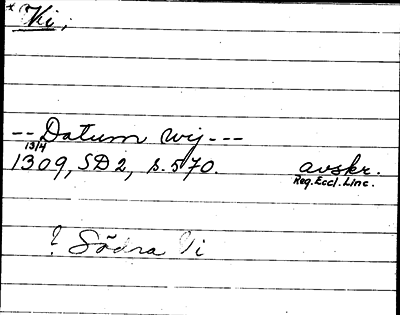 * Vi,
-- Datum wij ---
13/4
1309, SD 2, s. 570. avskr.
Reg. Eccl. Linc.
? Södra Vi